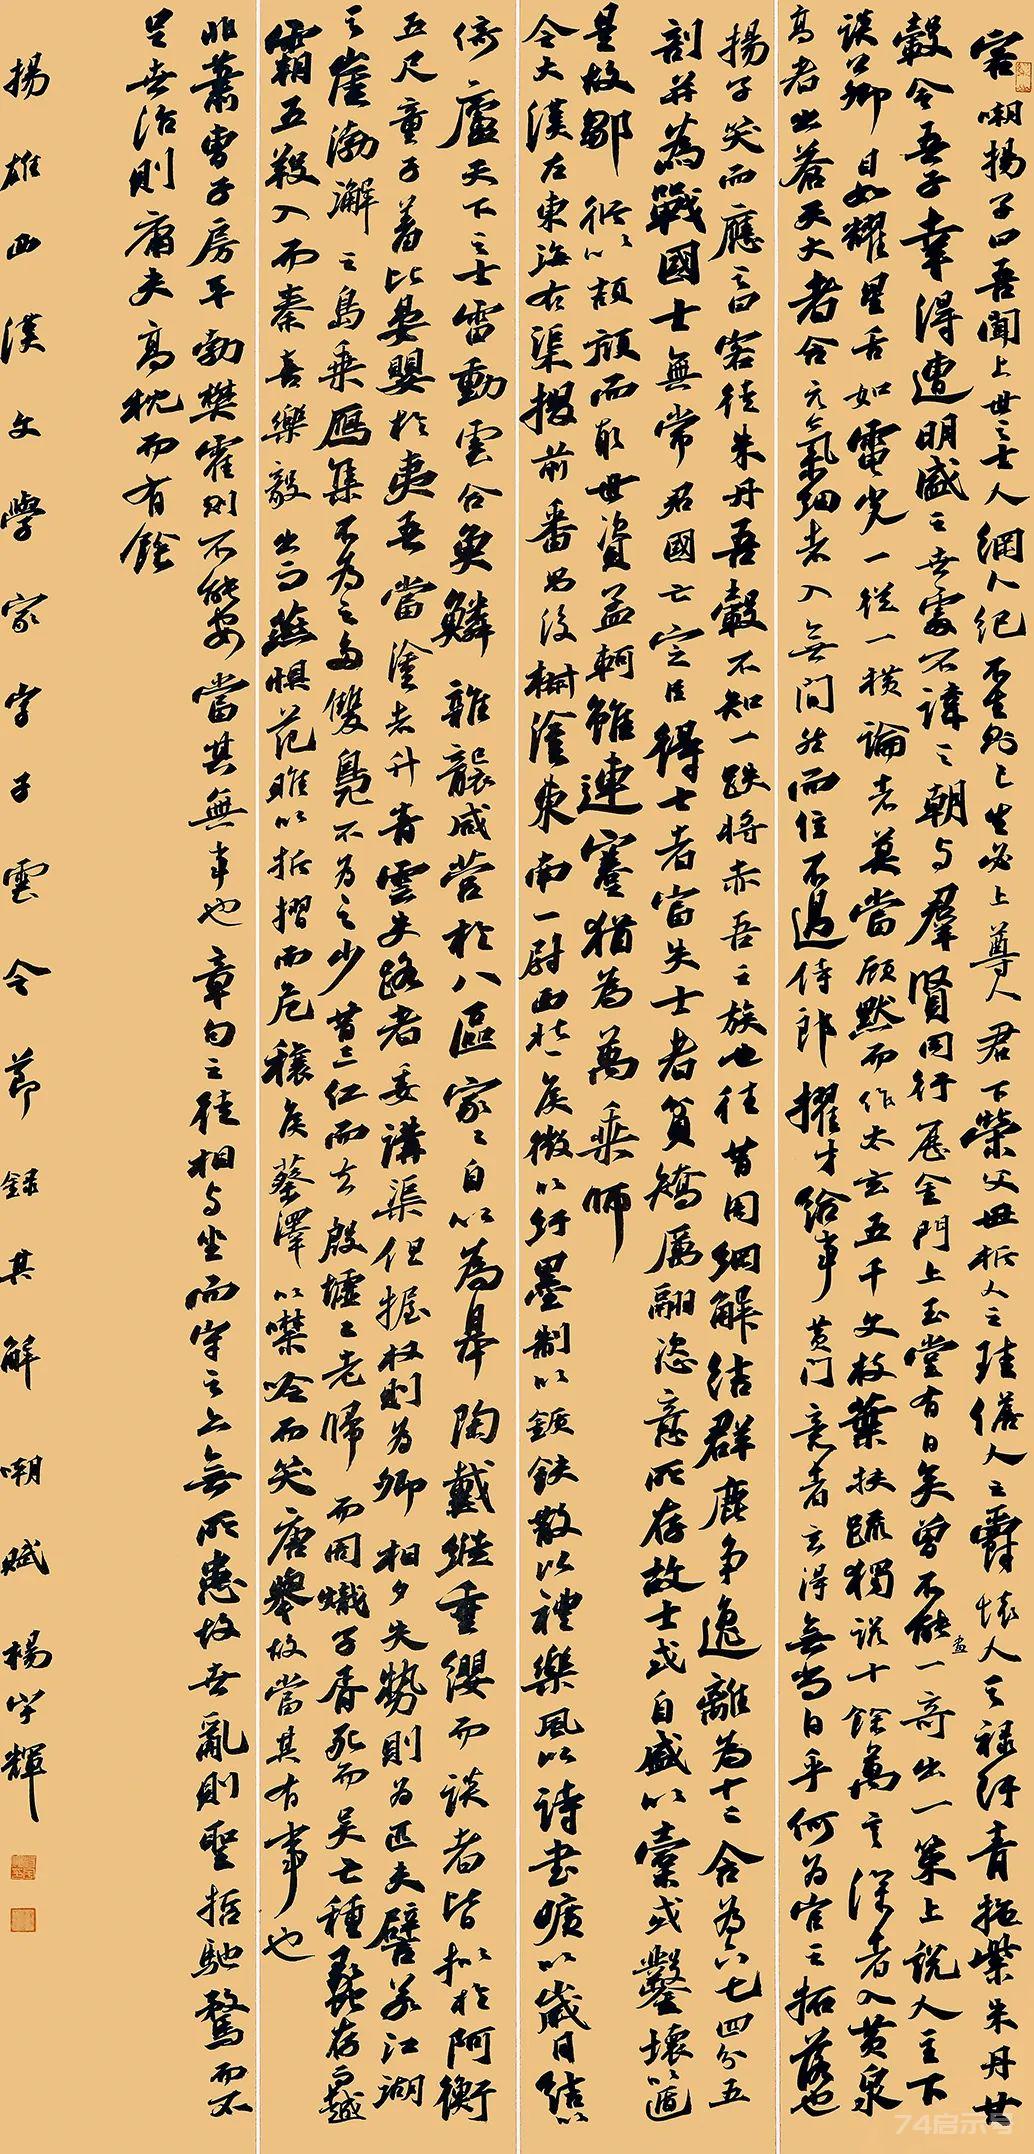 客嘲揚子曰吾聞上世之士人綱人紀不生則已生必上尊人君下榮父母析人之珪儋人之爵懷人之祿紆青拖紫朱丹其
轂今吾子幸得遭明盛之世處不諱之朝與群賢同行歷金門上玉堂有日矣曾不能畫一奇出一策上說人主下
談公卿目如耀星舌如電光一從一橫論者莫當顧默而作太玄五千文枝葉扶疏獨說十餘萬言深者入黃泉
高者出蒼天大者含元氣細者入無間然而位不過侍郎擢才給事黃門意者玄得無尚白乎何為官之拓落也
揚子笑而應之曰客徒朱丹吾轂不知一跌將赤吾之族也往昔周綱解結群鹿爭逸離為十二合為六七四分五
剖并為戰國士無常君國亡定臣得士者富失士者貧矯厲翮恣意所存故士或自盛以橐或鑿壞以遁
是故鄒衍以頡頏而取世資孟軻雖連蹇猶為萬乘師
今大漢左東海右渠搜前番禺後椒塗東南一尉西北一侯徽以糾墨制以鈇鈇散以禮樂風以詩書曠以歲月結以
倚廬天下之士雷動雲合魚鱗雜襲咸營於八區家家自以為皋陶戴縰垂纓而談者皆擬於阿衡
五尺童子羞比晏嬰於夷吾當塗者升青雲失路者委溝渠但握權則為卿相夕失勢則為匹夫譬若江湖
之崖渤澥之島乘鴈集不為之多雙鳧不為之少昔三仁而去殷墟二老歸而周熾子胥死而吳亡種蠡存而越
霸五羖入而秦喜樂毅出而燕懼范雎以折摺而危穰侯蔡澤以噤吟而笑唐舉故當其有事也
非蕭曹子房平勃樊霍則不能安當其無事也章句之徒相與坐而守之亦無所患故世亂則聖哲馳騖而不
足世治則庸夫高枕而有餘
揚雄西漢文學家字子雲今節錄其解嘲賦楊宇輝
74启示号